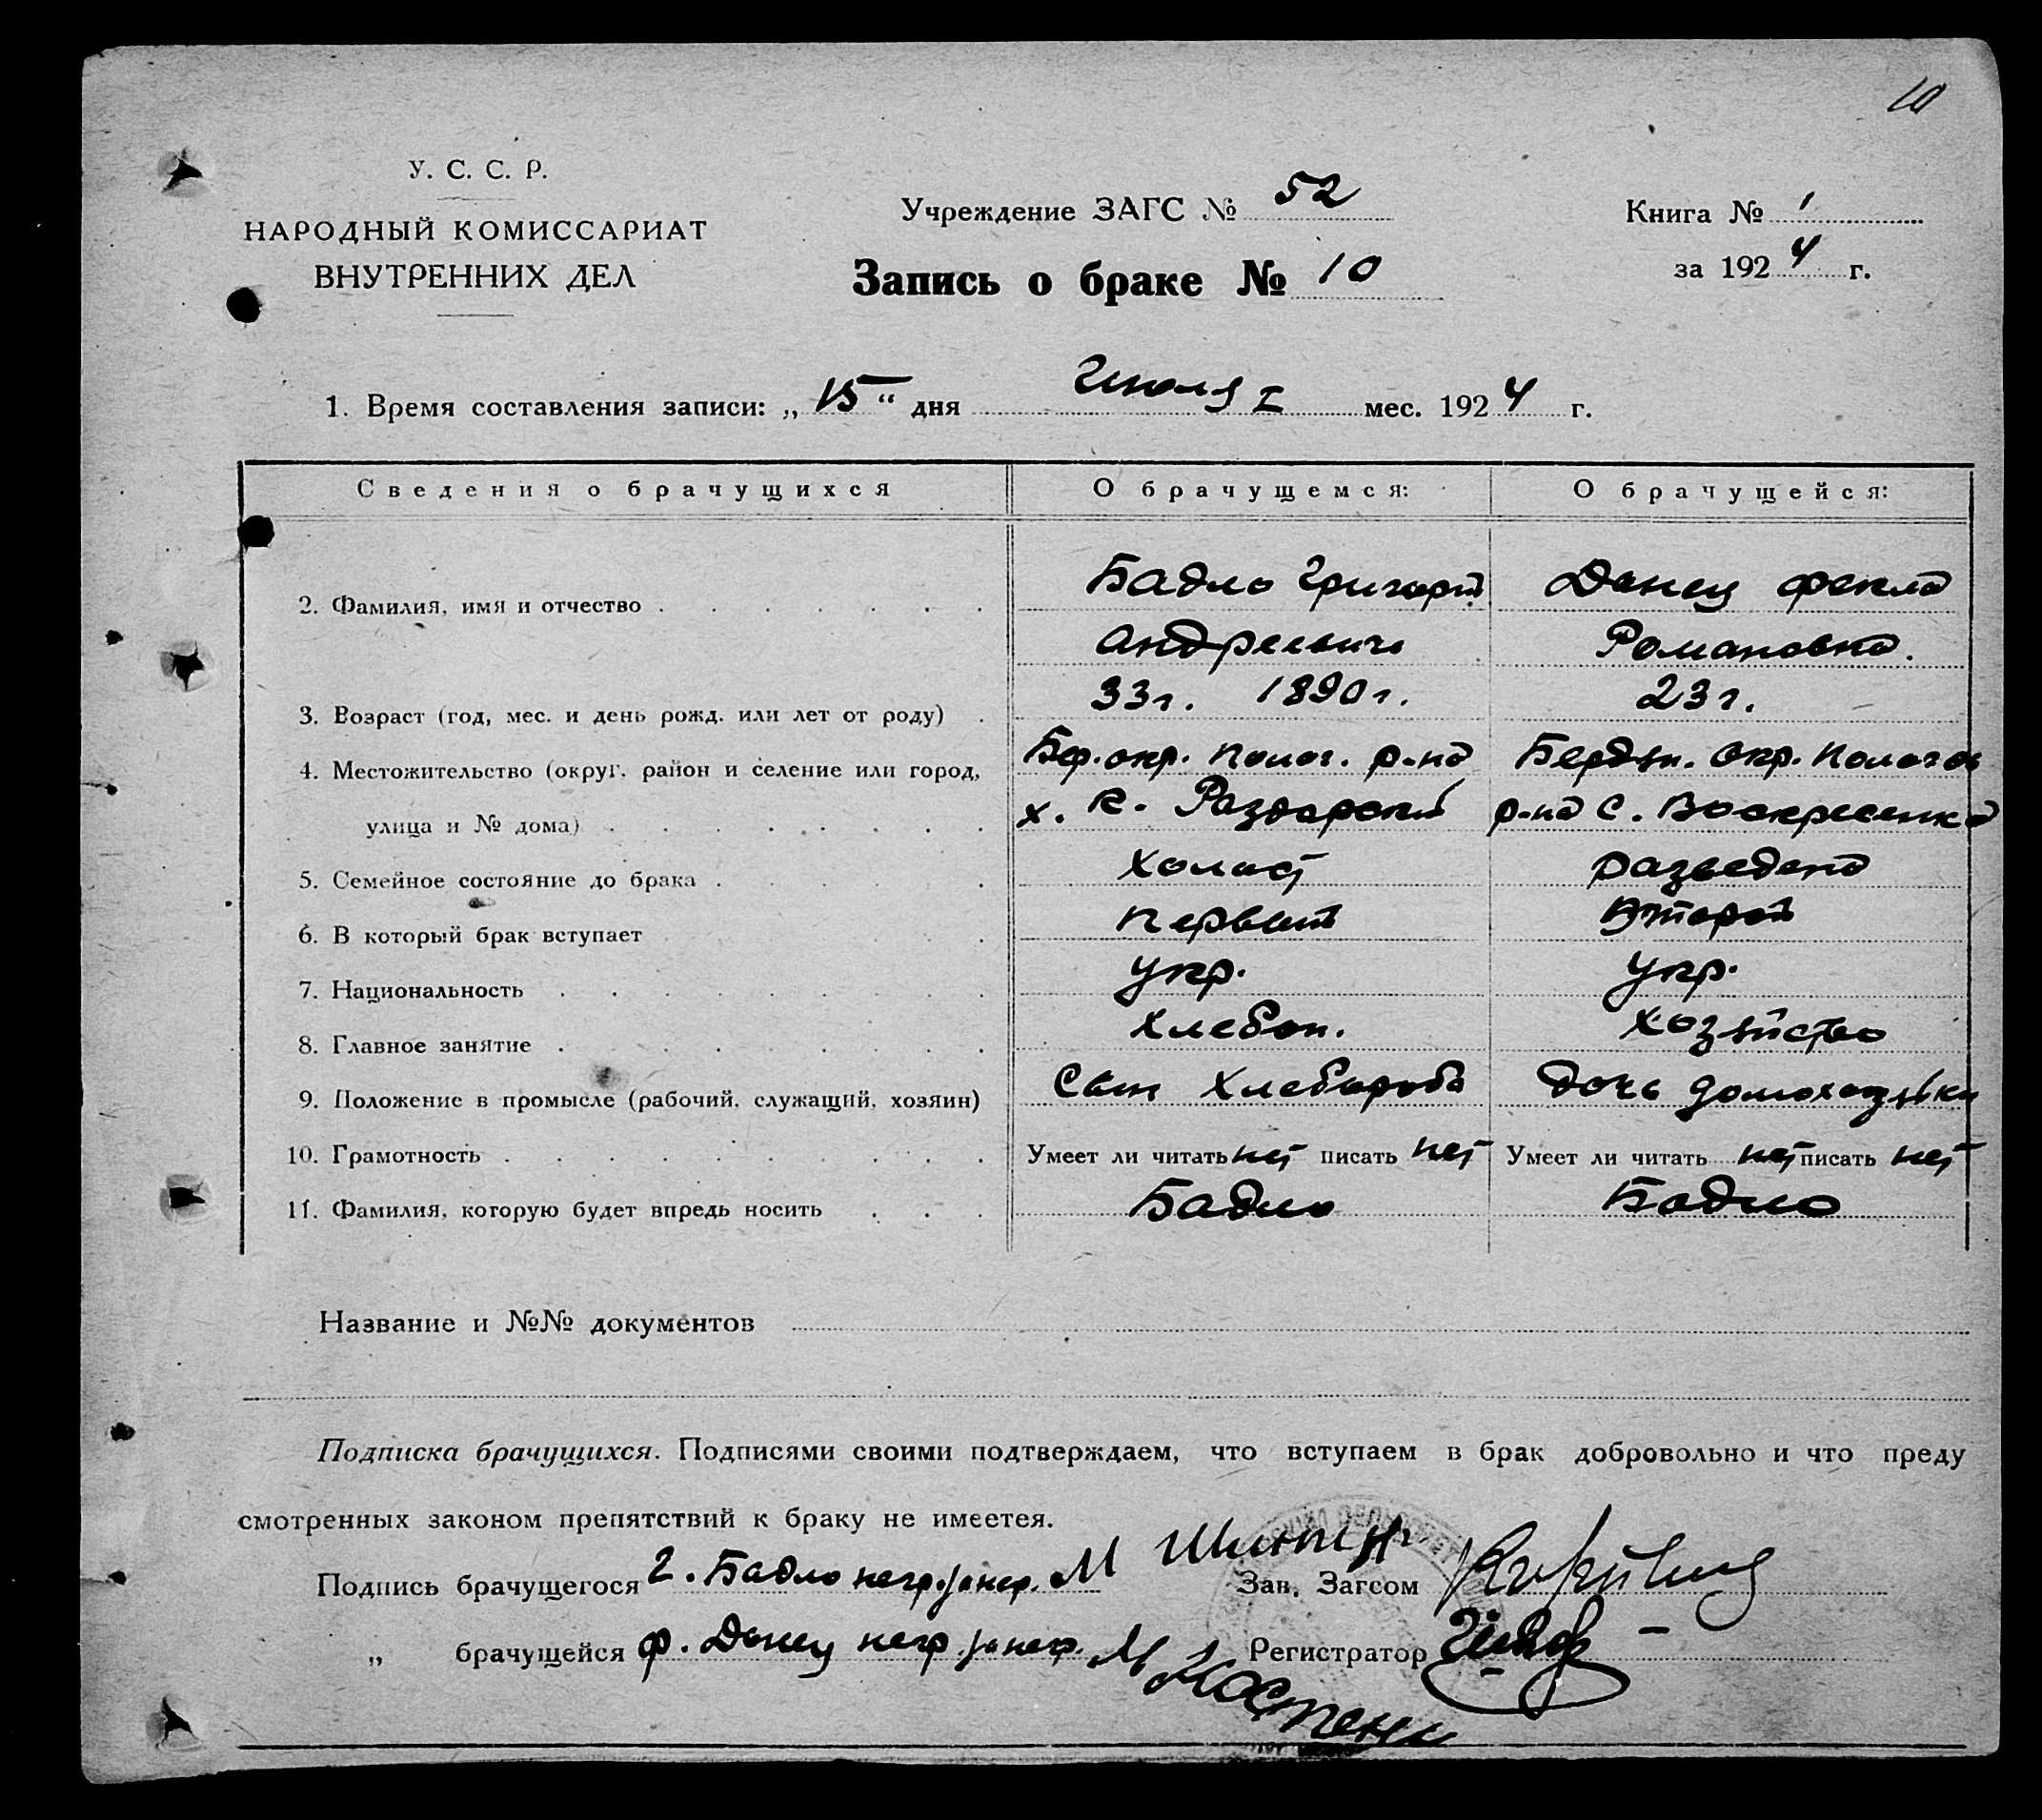 10
У. С. С. Р.
НАРОДНЫЙ КОМИССАРИАТ
ВНУТРЕННИХ ДЕЛ
Учреждение ЗАГС № 52
Запись о браке № 10
Книга № 1
за 1924 г.
1. Время составления записи: „ 15 “ дня Июля I мес. 1924 г.
Сведения о брачущихся О брачущемся: О брачущейся:
Бадло Григорий Донец Фекла
2. Фамилия, имя и отчество
Андреевич Романовна.
33 г. 1890 г. 23 г.
3. Возраст (год, мес. и день рожд. или лет от роду)
4. Местожительство (округ, район и селение или город, Бер. окр. Полог. р-на Бердян. окр. Пологов
улица и № дома) х. К. Раздорский р-на С. Воскресенка
5. Семейное состояние до брака Холост разведена
6. В который брак вступает первый второй
7. Национальность укр. укр.
8. Главное занятие хлебоп. хозяйство
9. Положение в промысле (рабочий, служащий, хозяин) Сын хлебороба дочь домохозяйки
10. Грамотность Умеет ли читать нет писать нет Умеет ли читать нет писать нет
11. Фамилия, которую будет впредь носить Бадло Бадло
Название и №№ документов
Подписка брачущихся. Подписями своими подтверждаем, что вступаем в брак добровольно и что преду
смотренных законом препятствий к браку не имеетея.
Подпись брачущегося Г. Бадло негр. за негр. М Зав. Загсом
„ брачущейся Ф. Донец негр. за негр. М Регистратор